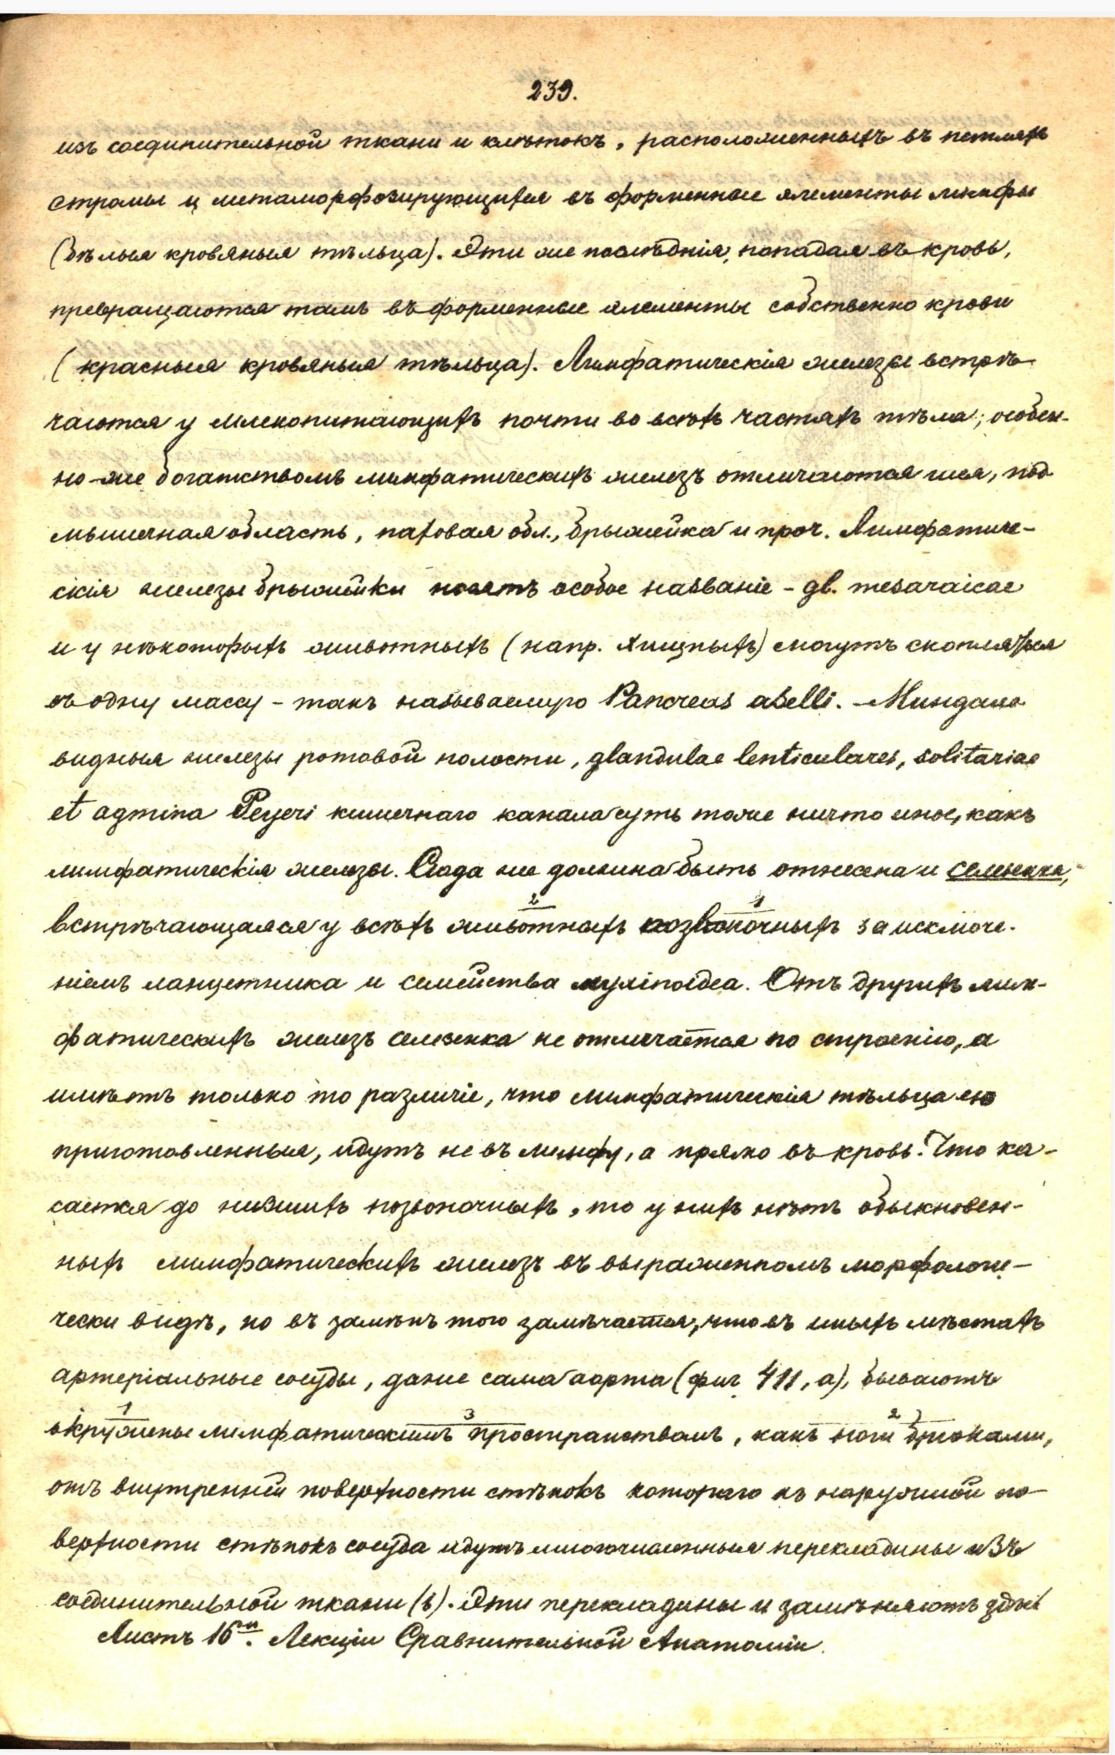 239.
изъ соединительной ткани и клѣтокъ, расположенныхъ въ петляхъ
стромы и метаморфозирующихся въ форменные элементы лимфы
(бѣлыя кровяныя тѣльца). Эти же послѣднія, попадая въ кровь,
превращаются тамъ въ форменные элементы собственно крови
(красныя кровяныя тѣльца). Лимфатическія железы встрѣ-
чаются у млекопитающихъ почти во всѣхъ частяхъ тѣла; особен-
но-же богатствомъ лимфатическихъ железъ отличаются шея, под
мышечная область, паховая обл., брыжейка и проч. Лимфатиче-
скія железы брыжейки носятъ особое названіе - gl. mesaraicae
и у нѣкоторыхъ животныхъ (напр. хищныхъ) могутъ скопляться
въ одну массу - такъ называемую Pancreas aselli. - Миндале
видныя железы ротовой полости, glandulae lenticulares, solitariae
et agmina Peyeri кишечнаго канала суть тоже ничто иное, какъ
лимфатическія железы. Сюда же должна быть отнесена и селезенка,
встрѣчающаяся у всѣхъ животныхъ позвоночныхъ за исключе-
2 1
ніемъ ланцетника и семейства myxinoidea. Отъ другихъ лим-
фатическихъ железъ селезенка не отличается по строенію, а
имѣетъ только то различіе, что лимфатическія тѣльца ею
приготовленныя, идутъ не въ лимфу, а прямо въ кровь. Что ка-
сается до низшихъ позвоночныхъ, то у нихъ нѣтъ обыкновен-
ныхъ лимфатическихъ железъ въ выраженномъ морфологи-
чески видѣ, но въ замѣнъ того замѣчается, что въ иныхъ мѣстахъ
артеріальные сосуды, даже сама аорта (фиг. 411, a), бываютъ
1 3 2
окружены лимфатическимъ пространствомъ, какъ ноги брюками,
отъ внутренней поверхности стѣнокъ котораго къ наружной по-
верхности стѣнокъ сосуда идутъ многочисленныя перекладины изъ
соединительной ткани (b). Эти перекладины и замѣняютъ здѣсь
Листъ 16й. Лекціи Сравнительной Анатоміи.